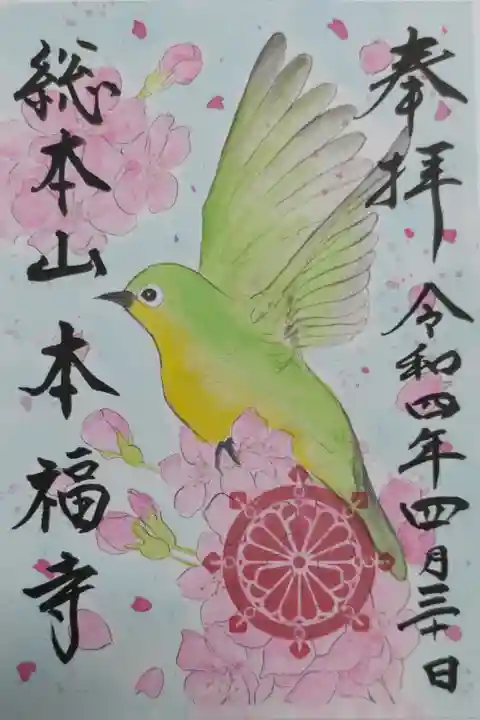 奉拝
令和四年四月三十日
総本山 本福寺